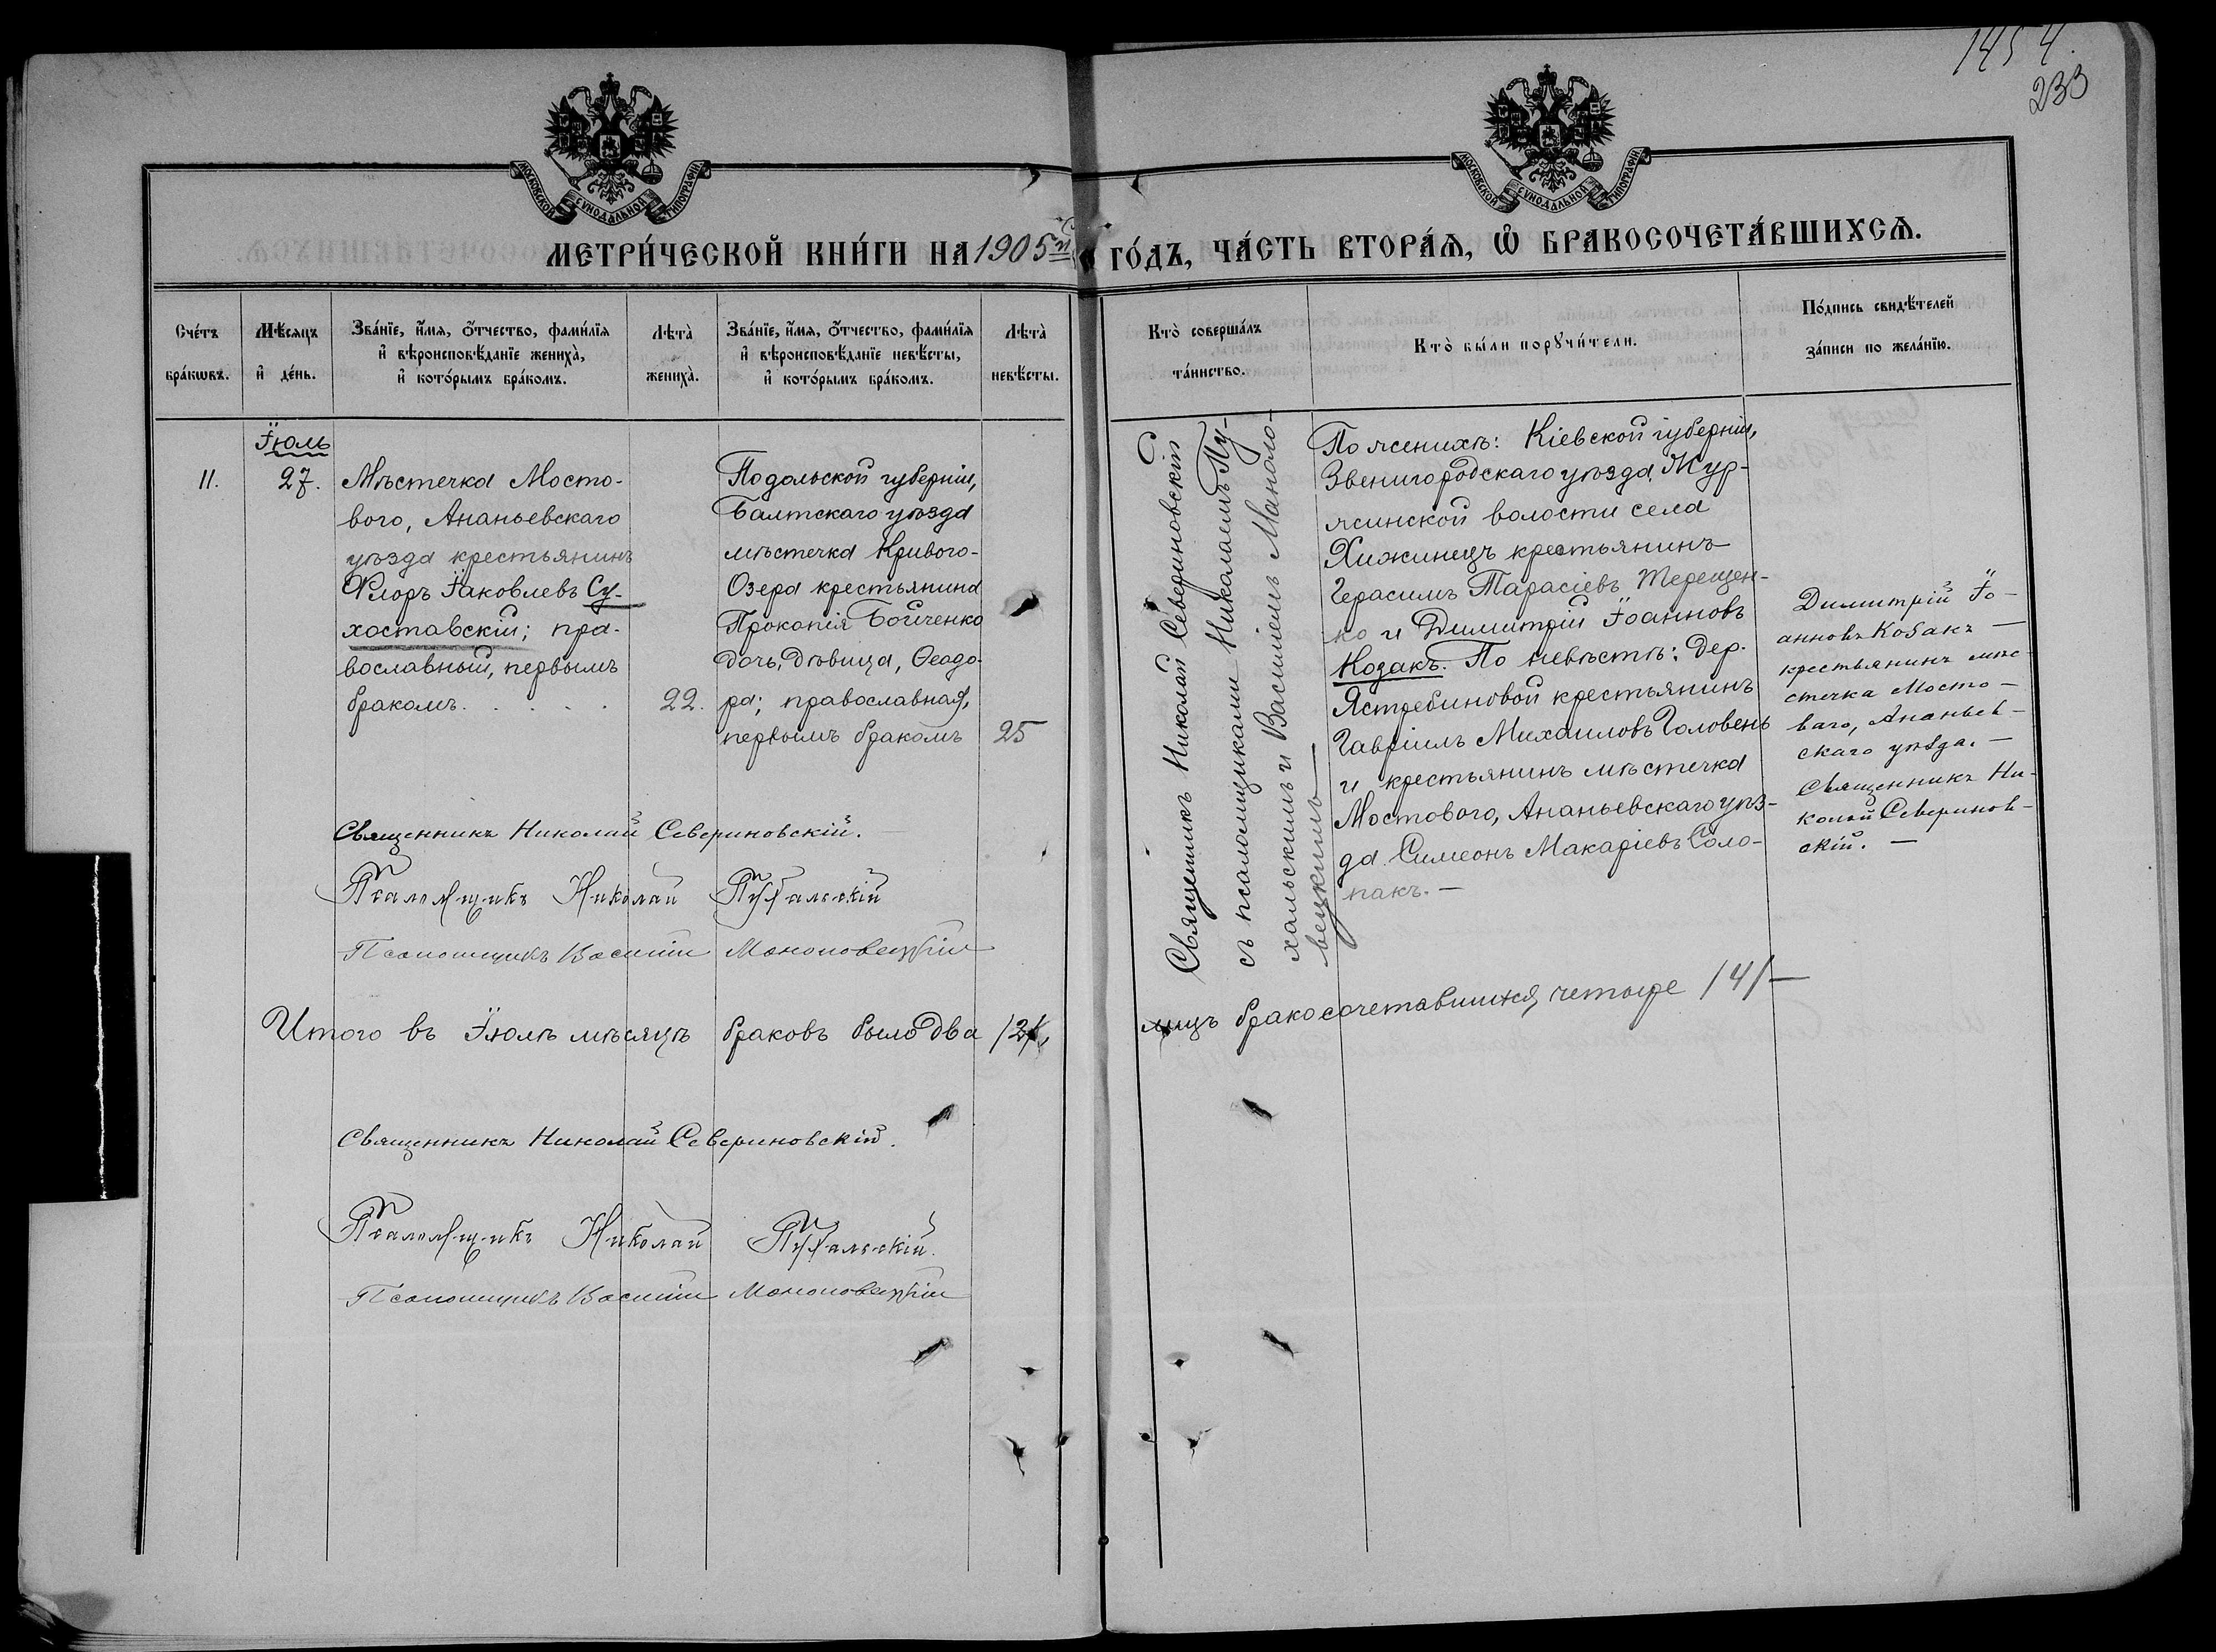 1454.
233
МОСКОВСКОЙ СѴНОДАЛЬНОЙ ТИПОГРАФІИ
МОСКОВСКОЙ СѴНОДАЛЬНОЙ ТИПОГРАФІИ
МЕТРИ́ЧЕСКОЙ КНИ́ГИ НА 1905й ГО́ДЪ, ЧА́СТЬ ВТОРА́Ѧ, Ѡ҆ БРАКОСОЧЕТА́ВШИХСѦ.
Сче́тъ
бра́кѡвъ.
Мѣ́сяцъ
и҆ де́нь.
Зва́нїе, и҆́мя, ѻ҆́тчество, фами́лїя
и҆ вѣроисповѣ́данїе жениха̀,
и҆ кото́рымъ бра́комъ.
Лѣта̀
жениха̀.
Зва́нїе, и҆́мя, ѻ҆́тчество, фами́лїя
и҆ вѣроисповѣ́данїе невѣ́сты,
и҆ кото́рымъ бра́комъ.
Лѣта̀
невѣ́сты.
Кто̀ соверша́лъ
та́инство.
Кто̀ бы́ли порꙋчи́тели.
По́дпись свидѣ́телей
за́писи по жела́нїю.
11.
Іюль
27.
Мѣстечка Мосто-
вого, Ананьевскаго
уѣзда крестьянинъ
Флоръ Іаковлевъ Су-
хоставскій; пра-
вославный, первымъ
бракомъ. . . . .
22.
Подольской губерніи,
Балтскаго уѣзда
мѣстечка Кривого-
Озера крестьянина
Прокопія Бойченко
дочь, дѣвица, Ѳеодо-
ра; православная,
первымъ бракомъ
25
Священникъ Николай Севериновскій
съ псаломщиками Николаемъ Пу-
хальскимъ и Василіемъ Маноло-
вецкимъ
По женихѣ: Кіевской губерніи,
Звенигородскаго уѣзда, Жур-
жинской волости села
Хижинецъ крестьянинъ
Герасимъ Тарасіевъ Терещен-
ко и Димитрій Іоанновъ
Козакъ. По невѣстѣ: дер.
Ястребиновой крестьянинъ
Гавріилъ Михаиловъ Головень
и крестьянинъ мѣстечка
Мостового, Ананьевскаго уѣз-
да Симеонъ Макаріевъ Соло-
пакъ. —
Димитрій Іо-
анновъ Козакъ —
крестьянинъ мѣс-
течка Мосто-
ваго, Ананьев-
скаго уѣзда. —
Священникъ Ни-
колай Северинов-
скій. —
Священникъ Николай Севериновскій.
Псаломщикъ Николай Пухальскій
Псаломщикъ Василій Маноловецкій
Итого въ Іюлѣ мѣсяцѣ браковъ было два /2/,
лицъ бракосочетавшихся четыре /4/ —
Священникъ Николай Севериновскій.
Псаломщикъ Николай Пухальскій.
Псаломщикъ Василій Маноловецкій